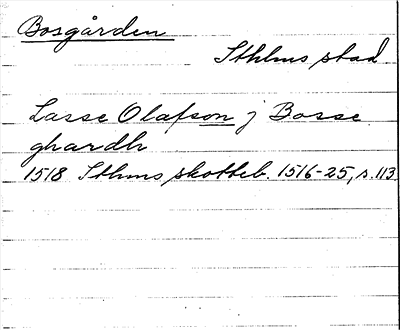 Bosgården
Sthlms stad
Lasse Olafson j Bosse
ghardh
1518 Sthms skotteb. 1516-25, s. 113